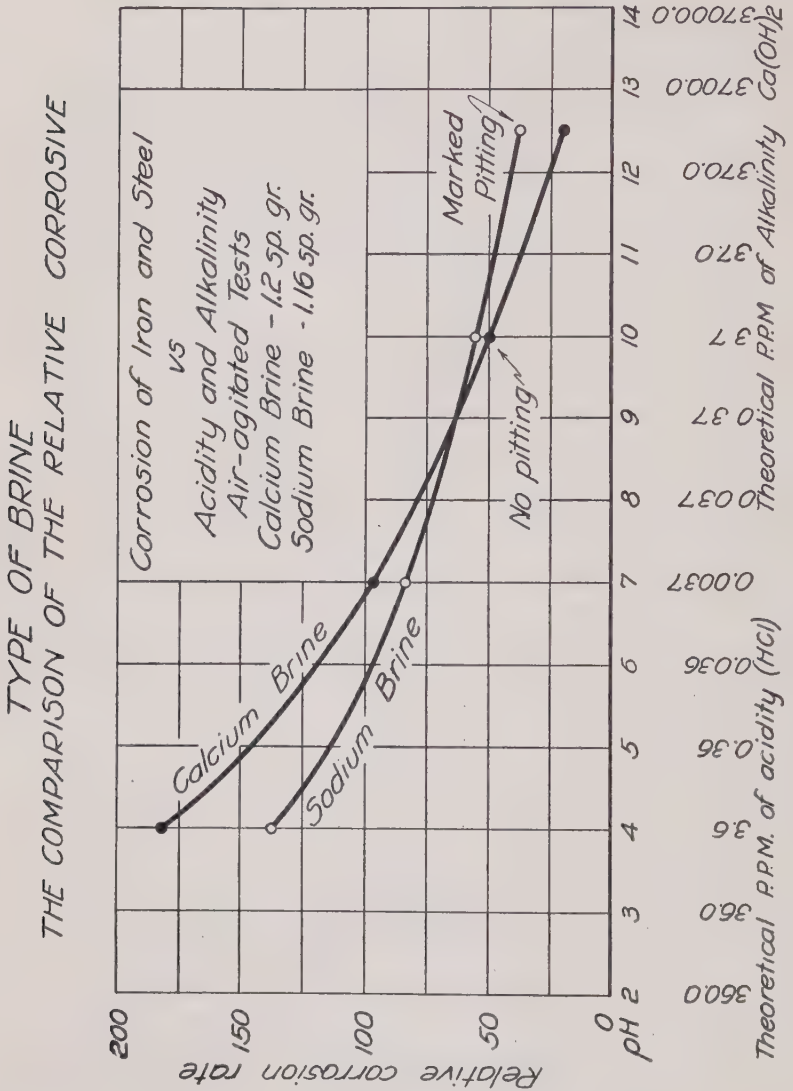 TYPE OF BRINE
THE COMPARISON OF THE RELATIVE CORROSIVE
Corrosion of Iron and Steel
vs
Acidity and Alkalinity
Air-agitated Tests
Calcium Brine - 1.2 sp. gr.
Sodium Brine - 1.16 sp. gr.
Calcium Brine
Sodium Brine
Marked
Pitting
No pitting
Relative corrosion rate
200
150
100
50
0
pH
2 3 4 5 6 7 8 9 10 11 12 13 14
360.0 36.0 3.6 0.36 0.036 0.0037 0.037 0.37 3.7 37.0 370.0 3700.0 37000.0
Theoretical P.P.M. of acidity (HCl) Theoretical P.P.M of Alkalinity Ca(OH)2